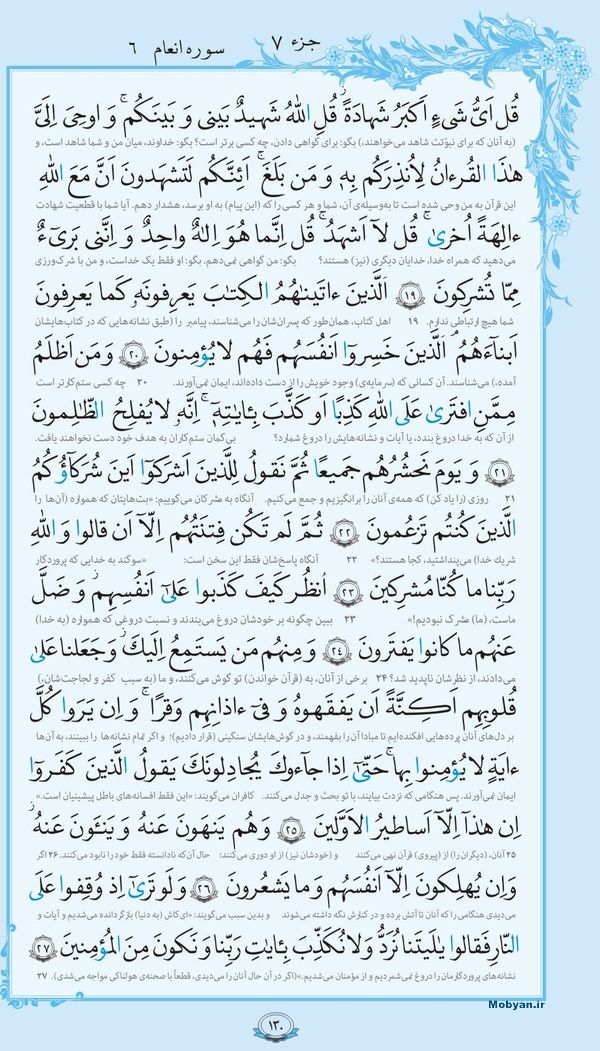 جزء ۷
سوره انعام ۶
قُل اَیُّ شَیءٍ اَکبَرُ شَهادَةً ۖ قُلِ اللهُ شَهیدٌ بَینی وَ بَینَکُم ۚ وَ اوحِیَ اِلَیَّ
(به آنان که برای نبوّتت شاهد می‌خواهند،) بگو: برای گواهی دادن، چه کسی برتر است؟ بگو: خداوند، میان من و شما شاهد است، و
هٰذَا القُرءانُ لِاُنذِرَکُم بِه۪ وَ مَن بَلَغَ ۚ اَئِنَّکُم لَتَشهَدونَ اَنَّ مَعَ اللهِ
این قرآن به من وحی شده است تا به‌وسیله‌ی آن، شما و هر کسی را که (این پیام) به او برسد، هشدار دهم. آیا شما با قطعیت شهادت
ءالِهَةً اُخریٰ ۚ قُل لآ اَشهَدُ ۚ قُل اِنَّما هُوَ اِلٰهٌ واحِدٌ وَ اِنَّنی بَریءٌ
می‌دهید که همراه خدا، خدایان دیگری (نیز) هستند؟ بگو: من گواهی نمی‌دهم. بگو: او فقط یک خداست، و من با شرک‌ورزی
مِمّا تُشرِکونَ ﴿۱۹﴾ اَلَّذینَ ءاتَینٰهُمُ الکِتٰبَ یَعرِفونَه۫ کَما یَعرِفونَ
شما هیچ ارتباطی ندارم. ۱۹ اهل کتاب، همان‌طور که پسران‌شان را می‌شناسند، پیامبر را (طبق نشانه‌هایی که در کتاب‌هایشان
اَبنآءَهُمُ ۘ الَّذینَ خَسِروا اَنفُسَهُم فَهُم لا یُؤمِنونَ ﴿۲۰﴾ وَ مَن اَظلَمُ
آمده،) می‌شناسند. آن کسانی که (سرمایه‌ی) وجود خویش را از دست داده‌اند، ایمان نمی‌آورند. ۲۰ چه کسی ستم‌کارتر است
مِمَّنِ افتَریٰ عَلَی اللهِ کَذِبًا اَو کَذَّبَ بِئایٰتِه۪ ۗ اِنَّه۫ لا یُفلِحُ الظّٰلِمونَ
از آن که به خدا دروغ بندد، یا آیات و نشانه‌هایش را دروغ شمارد؟ بی‌گمان ستم‌کاران به هدف خود دست نخواهند یافت.
﴿۲۱﴾ وَ یَومَ نَحشُرُهُم جَمیعًا ثُمَّ نَقولُ لِلَّذینَ اَشرَکوا اَینَ شُرَکآؤُکُمُ
۲۱ روزی (را یاد کن) که همه‌ی آنان را برانگیزیم و جمع می‌کنیم. آنگاه به مشرکان می‌گوییم: «بت‌هایتان که همواره (آن‌ها را
الَّذینَ کُنتُم تَزعُمونَ ﴿۲۲﴾ ثُمَّ لَم تَکُن فِتنَتُهُم اِلّآ اَن قالوا وَ اللهِ
شریک خدا) می‌پنداشتید، کجا هستند؟» ۲۲ آنگاه پاسخ‌شان فقط این سخن است: «سوگند به خدایی که پروردگار
رَبِّنا ما کُنّا مُشرِکینَ ﴿۲۳﴾ اُنظُر کَیفَ کَذَبوا عَلیٰٓ اَنفُسِهِم ۚ وَ ضَلَّ
ماست، (ما) مشرک نبودیم!» ۲۳ ببین چگونه بر خودشان دروغ می‌بندند و نسبت دروغی که همواره (به خدا)
عَنهُم ما کانوا یَفتَرونَ ﴿۲۴﴾ وَ مِنهُم مَن یَستَمِعُ اِلَیکَ ۖ وَ جَعَلنا عَلیٰ
می‌دادند، از نظرشان ناپدید شد؟ ۲۴ برخی از آنان، به (قرآن خواندن) تو گوش می‌کنند، و ما (به سبب کفر و لجاجت‌شان،)
قُلوبِهِم اَکِنَّةً اَن یَفقَهوهُ وَ فیٓ ءاذانِهِم وَقرًا ۚ وَ اِن یَرَوا کُلَّ
بر دل‌های آنان پرده‌هایی افکنده‌ایم تا مبادا آن را بفهمند، و در گوش‌هایشان سنگینی (قرار دادیم)؛ و اگر تمام نشانه‌ها را ببینند، به آن‌ها
ءایَةٍ لا یُؤمِنوا بِها ۚ حَتّیٰٓ اِذا جآءوکَ یُجادِلونَکَ یَقولُ الَّذینَ کَفَروا
ایمان نمی‌آورند. پس هنگامی که نزدت بیایند، با تو بحث و جدل می کنند. کافران می‌گویند: «این فقط افسانه‌های باطل پیشینیان است.»
اِن هٰذآ اِلّآ اَساطیرُ الاَوَّلینَ ﴿۲۵﴾ وَ هُم یَنهَونَ عَنهُ وَ یَنئَونَ عَنهُ ۖ
۲۵ آنان، (دیگران را) از (پیروی) قرآن نهی می‌کنند و (خودشان نیز) از او دوری می‌کنند؛ حال آن‌که نادانسته فقط خود را نابود می‌کنند. ۲۶ اگر
وَ اِن یُهلِکونَ اِلّآ اَنفُسَهُم وَ ما یَشعُرونَ ﴿۲۶﴾ وَ لَو تَریٰٓ اِذ وُقِفوا عَلَی
می‌دیدی هنگامی را که آنان تا آتش برده و در کنارش نگه داشته می‌شوند و بدین سبب می‌گویند: «ای‌کاش (به دنیا) بازگردانده می‌شدیم و آیات و
النّارِ فَقالوا یٰلَیتَنا نُرَدُّ وَ لا نُکَذِّبَ بِئایٰتِ رَبِّنا وَ نَکونَ مِنَ المُؤمِنینَ ﴿۲۷﴾
نشانه‌های پروردگارمان را دروغ نمی‌شمردیم و از مؤمنان می‌شدیم.»(اگر در آن حال آنان را می‌دیدی، قطعاً با صحنه‌ی هولناکی مواجه می‌شدی). ۲۷
۱۳۰
Mobyan.ir